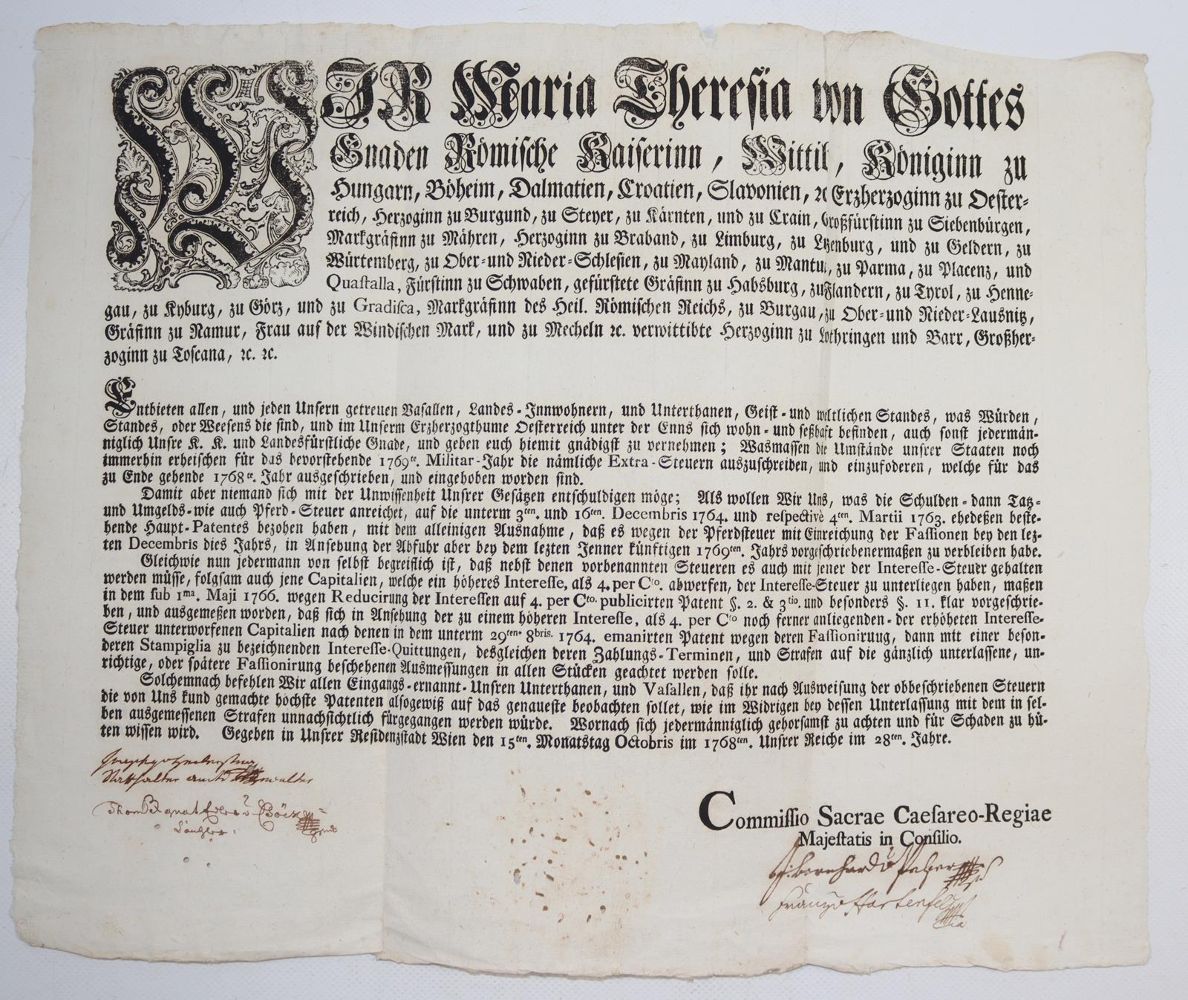 WIR Maria Theresia von Gottes
Gnaden Römische Kaiserinn, Wittib, Königinn zu
Hungarn, Böheim, Dalmatien, Croatien, Slavonien, ꝛc Erzherzoginn zu Oester-
reich, Herzoginn zu Burgund, zu Steyer, zu Kärnten, und zu Crain, Großfürstinn zu Siebenbürgen,
Markgräfinn zu Mähren, Herzoginn zu Braband, zu Limburg, zu Lützenburg, und zu Geldern, zu
Würtemberg, zu Ober-und Nieder-Schlesien, zu Mayland, zu Mantua, zu Parma, zu Placenz, und
Quastalla, Fürstinn zu Schwaben, gefürstete Gräfinn zu Habsburg, zu Flandern, zu Tyrol, zu Henne-
gau, zu Kyburg, zu Görz, und zu Gradisca, Markgräfinn des Heil. Römischen Reichs, zu Burgau, zu Ober-und Nieder-Lausnitz,
Gräfinn zu Namur, Frau auf der Windischen Mark, und zu Mecheln ꝛc. verwittibte Herzoginn zu Lothringen und Barr, Großher-
zoginn zu Toscana, ꝛc. ꝛc.
Entbieten allen, und jeden Unsern getreuen Vasallen, Landes-Innwohnern, und Unterthanen, Geist-und weltlichen Standes, was Würden,
Standes, oder Weesens die sind, und im Unserm Erzherzogthume Oesterreich unter der Enns sich wohn-und seßhaft befinden, auch sonst jedermän-
niglich Unsre K. K. und Landesfürstliche Gnade, und geben euch hiemit gnädigst zu vernehmen; Wasmassen die Umstände unsrer Staaten noch
immerhin erheischen für das bevorstehende 1769te. Militar-Jahr die nämliche Extra-Steuern auszuschreiben, und einzufoderen, welche für das
zu Ende gehende 1768te. Jahr ausgeschrieben, und eingehoben worden sind.
Damit aber niemand sich mit der Unwissenheit Unsrer Gesätzen entschuldigen möge; Als wollen Wir Uns, was die Schulden-dann Tatz-
und Umgelds-wie auch Pferd-Steuer anreichet, auf die unterm 3ten. und 16ten. Decembris 1764. und respectivè 4ten. Martii 1763. ehedeßen beste-
hende Haupt-Patentes bezohen haben, mit dem alleinigen Ausnahme, daß es wegen der Pferdsteuer mit Einreichung der Fassionen bey den lez-
ten Decembris dies Jahrs, in Ansehung der Abfuhr aber bey dem lezten Jenner künftigen 1769ten. Jahrs vorgeschriebenermaßen zu verbleiben habe.
Gleichwie nun jedermann von selbst begreiflich ist, daß nebst denen vorbenannten Steueren es auch mit jener der Interesse-Steuer gehalten
werden müsse, folgsam auch jene Capitalien, welche ein höheres Interesse, als 4. per Cto. abwerfen, der Interesse-Steuer zu unterliegen haben, maßen
in dem sub 1ma. Maji 1766. wegen Reducirung der Interessen auf 4. per Cto. publicirten Patent §. 2. & 3tio. und besonders §. 11. klar vorgeschrie-
ben, und ausgemeßen worden, daß sich in Ansehung der zu einem höheren Interesse, als 4. per Cto noch ferner anliegenden-der erhöheten Interesse-
Steuer unterworfenen Capitalien nach denen in dem unterm 29ten. 8bris. 1764. emanirten Patent wegen deren Fassioniruug, dann mit einer beson-
deren Stampiglia zu bezeichnenden Interesse-Quittungen, desgleichen deren Zahlungs-Terminen, und Strafen auf die gänzlich unterlassene, un-
richtige, oder spätere Fassionirung beschehenen Ausmessungen in allen Stücken geachtet werden solle.
Solchemnach befehlen Wir allen Eingangs-ernannt-Unsren Unterthanen, und Vasallen, daß ihr nach Ausweisung der obbeschriebenen Steuern
die von Uns kund gemachte höchste Patenten alsogewiß auf das genaueste beobachten sollet, wie im Widrigen bey dessen Unterlassung mit dem in sel-
ben ausgemessenen Strafen unnachsichtlich fürgegangen werden würde. Wornach sich jedermänniglich gehorsamst zu achten und für Schaden zu hü-
ten wissen wird. Gegeben in Unsrer Residenzstadt Wien den 15ten. Monatstag Octobris im 1768ten. Unsrer Reiche im 28ten. Jahre.
Commissio Sacrae Caesareo-Regiae
Majestatis in Consilio.